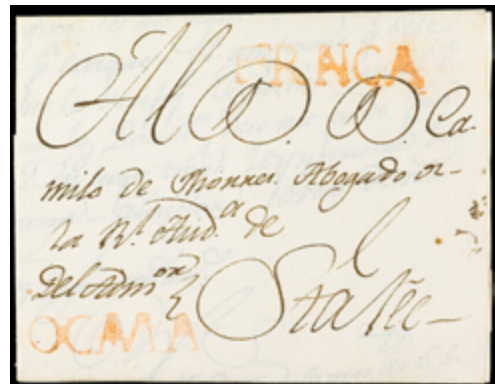 FRNCA
Al D. D. Ca-
milo de Thorres. Abogado de
la Rl. Aud.a de
Del Adm.or Sta fée
OCAÑA